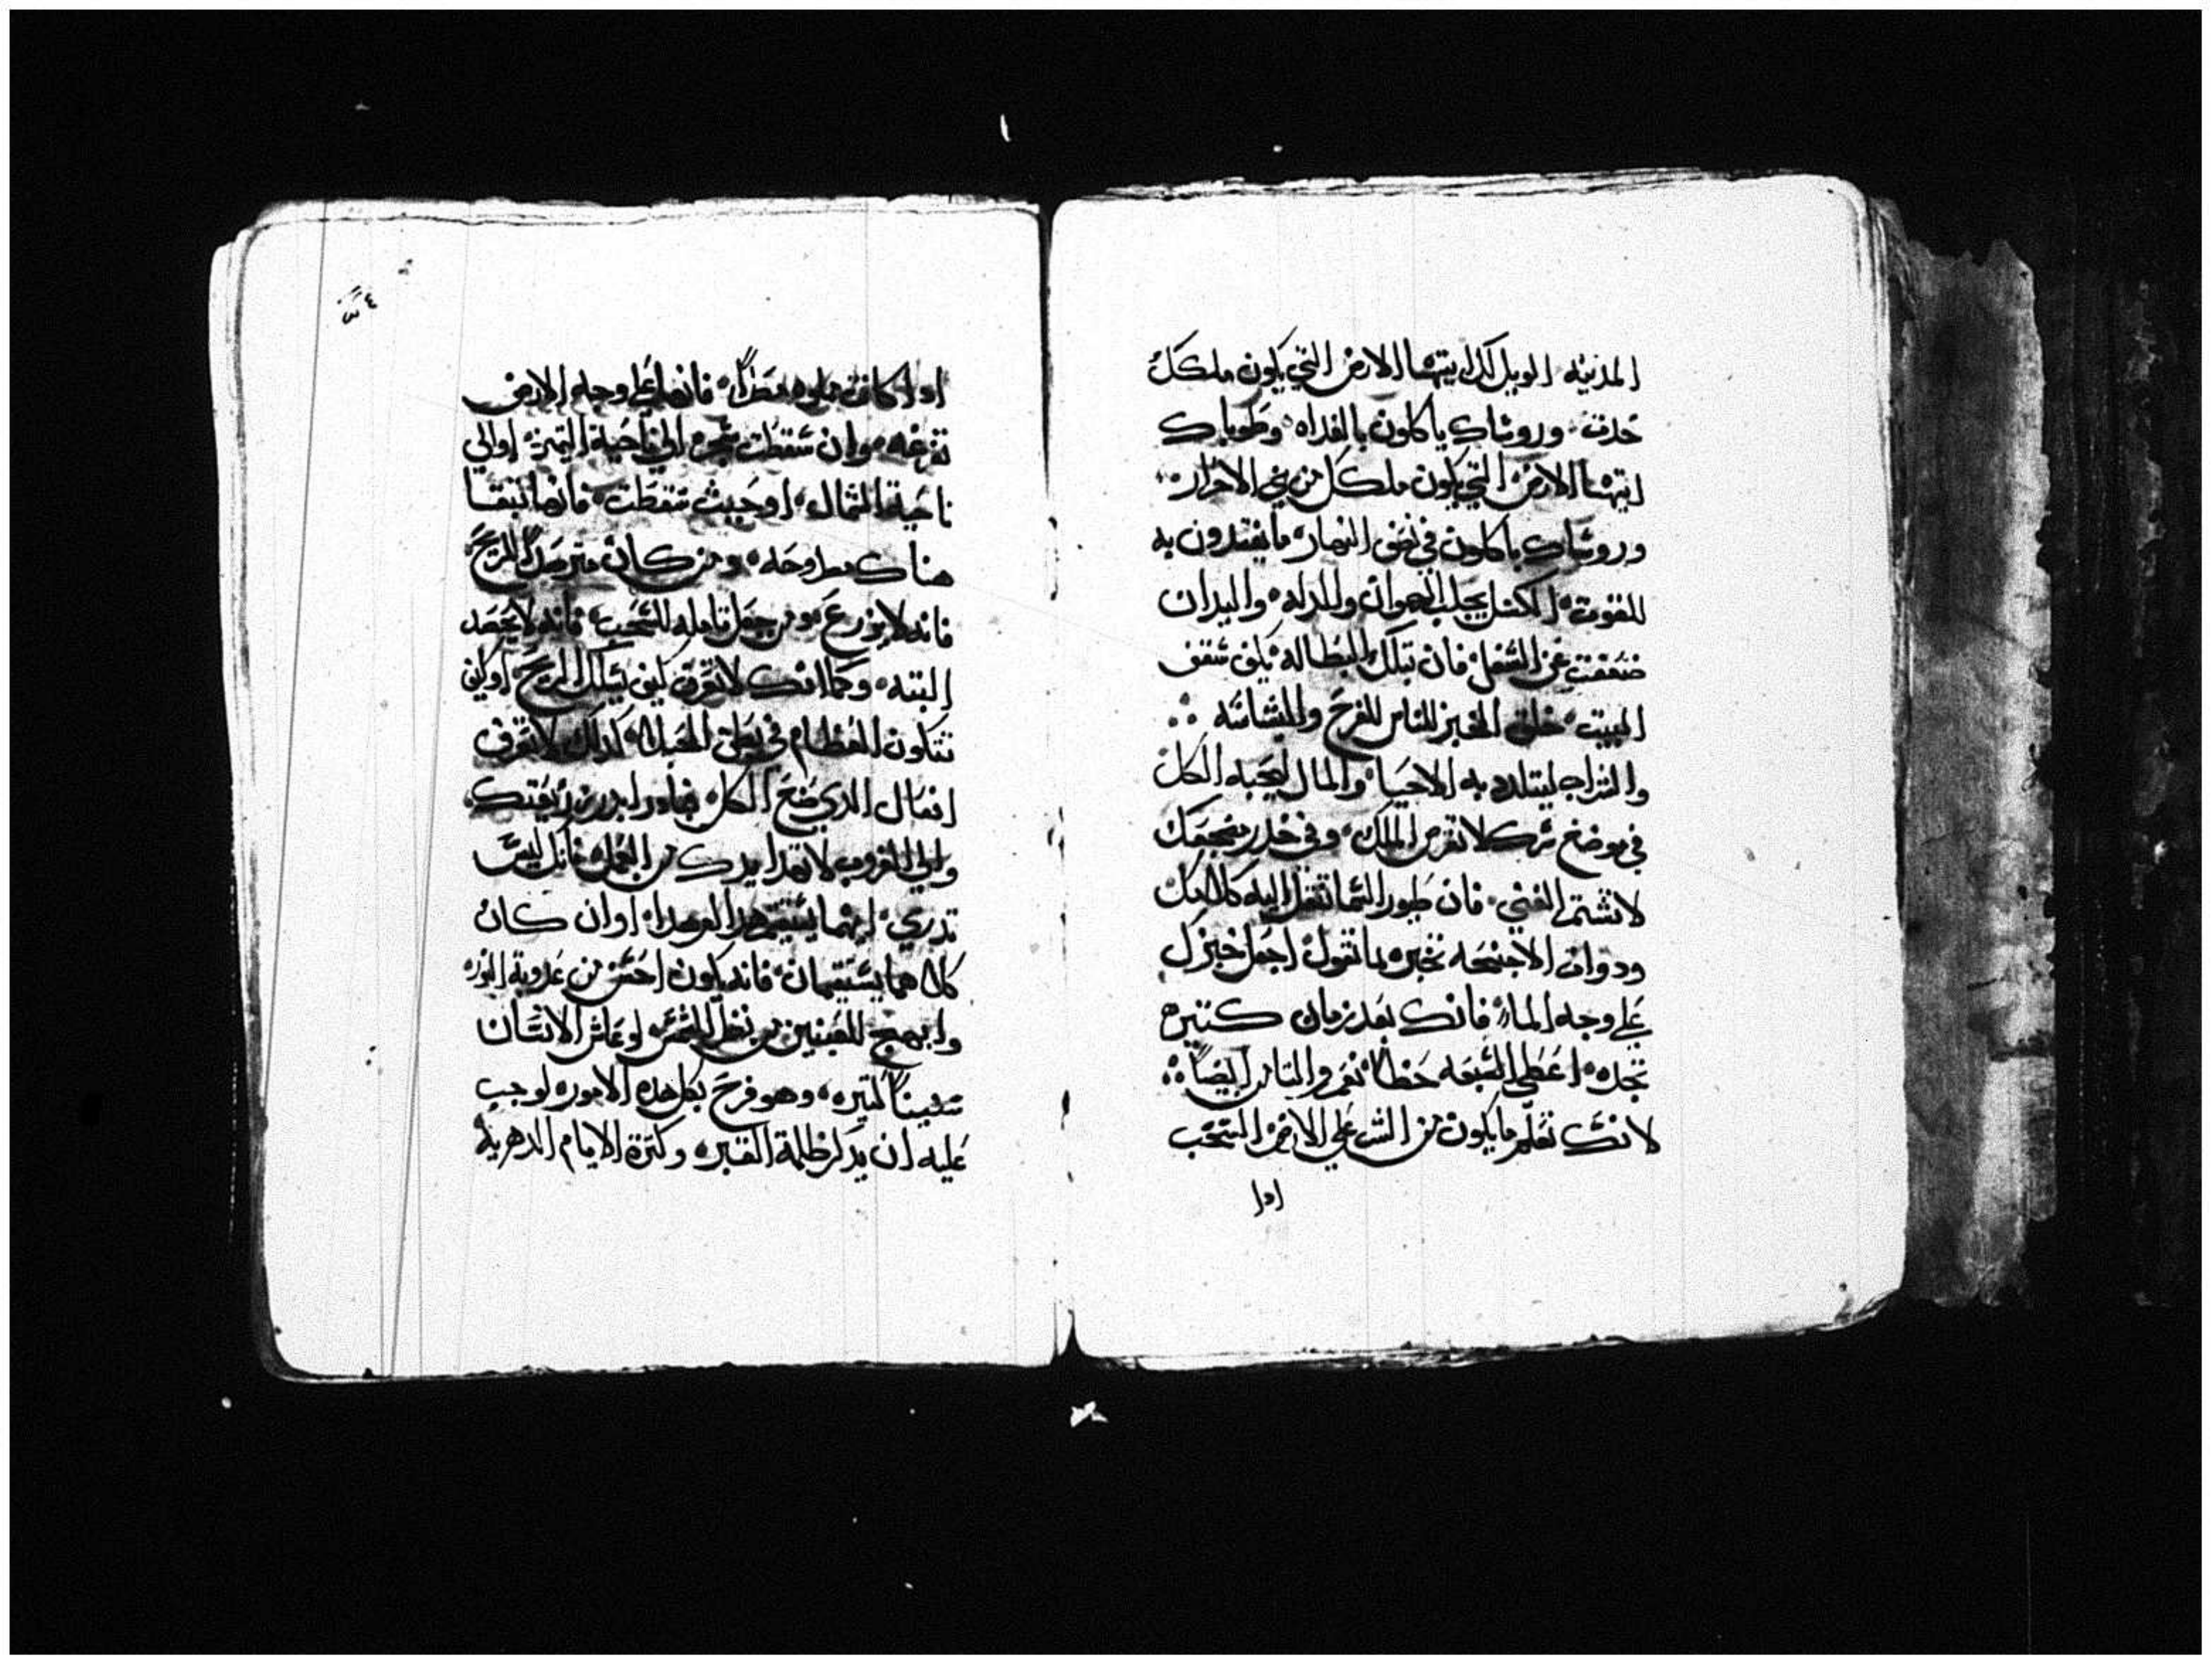 المدينه الويل لك ايتها الارض التي يكون ملكك
حدث وروساك ياكلون بالغداه وطوباك
ايتها الارض التي يكون ملكك من بني الاحرار
وروساك ياكلون في نصف النهار ما يغتدون به
للقوت الكسل يجلب الهوان والمدله واليدان
ضعفت عن الشغل فان تبلك البطاله يكف سقف
البيت خلق الخبز للناس للفرح والبشاشه
والشراب ليتلدد به الاحيا والمال ليحبه الكل
في موضع سرك لا تقرص الملك وفي خدر مضجعك
لا تشتم الغني فان طيور السما تنقل اليه كلامك
ودوات الاجنحه تخبره بما تقول اجعل خبزك
علي وجه الماء فانك بعد زمان كتيره
تجده اعطي السبعه حظا نعم والتامن ايضاً
لانك تعلم ما يكون من الشر علي الارض السحب
ادا
ادا كانت مملوه مطراً فانها علي وجه الارض
تفرغه وان سقطت شجره الي ناحية التيمن او الي
ناحية الشمال او حيث سقطت فانها تبقا
هناك مطروحه ومن كان مترصداً للريح
فانه لا يزرع ومن جعل تامله للسحب فانه لا يحصد
البته وكما انك لا تعرف كيف يسلك الريح او كيف
تتكون العظام في بطن الحبلا كدلك لا تعرف
افعال الدي صنع الكل فبادر ابدر زريعتك
والي الغروب لا تهدا يدك من العمل فانك ليس
تدري ايهما يستقيم هدا او هدا او ان كان
كلا هما يستقيمان فانه يكون احسن من عدوبة النور
وابهج للعينين من نظر الشمس لو عاش الانسان
سنيناً كتيره وهو فرح بكل هده الامور لوجب
عليه ان يدكر ظلمة القبر وكترة الايام الدهرية